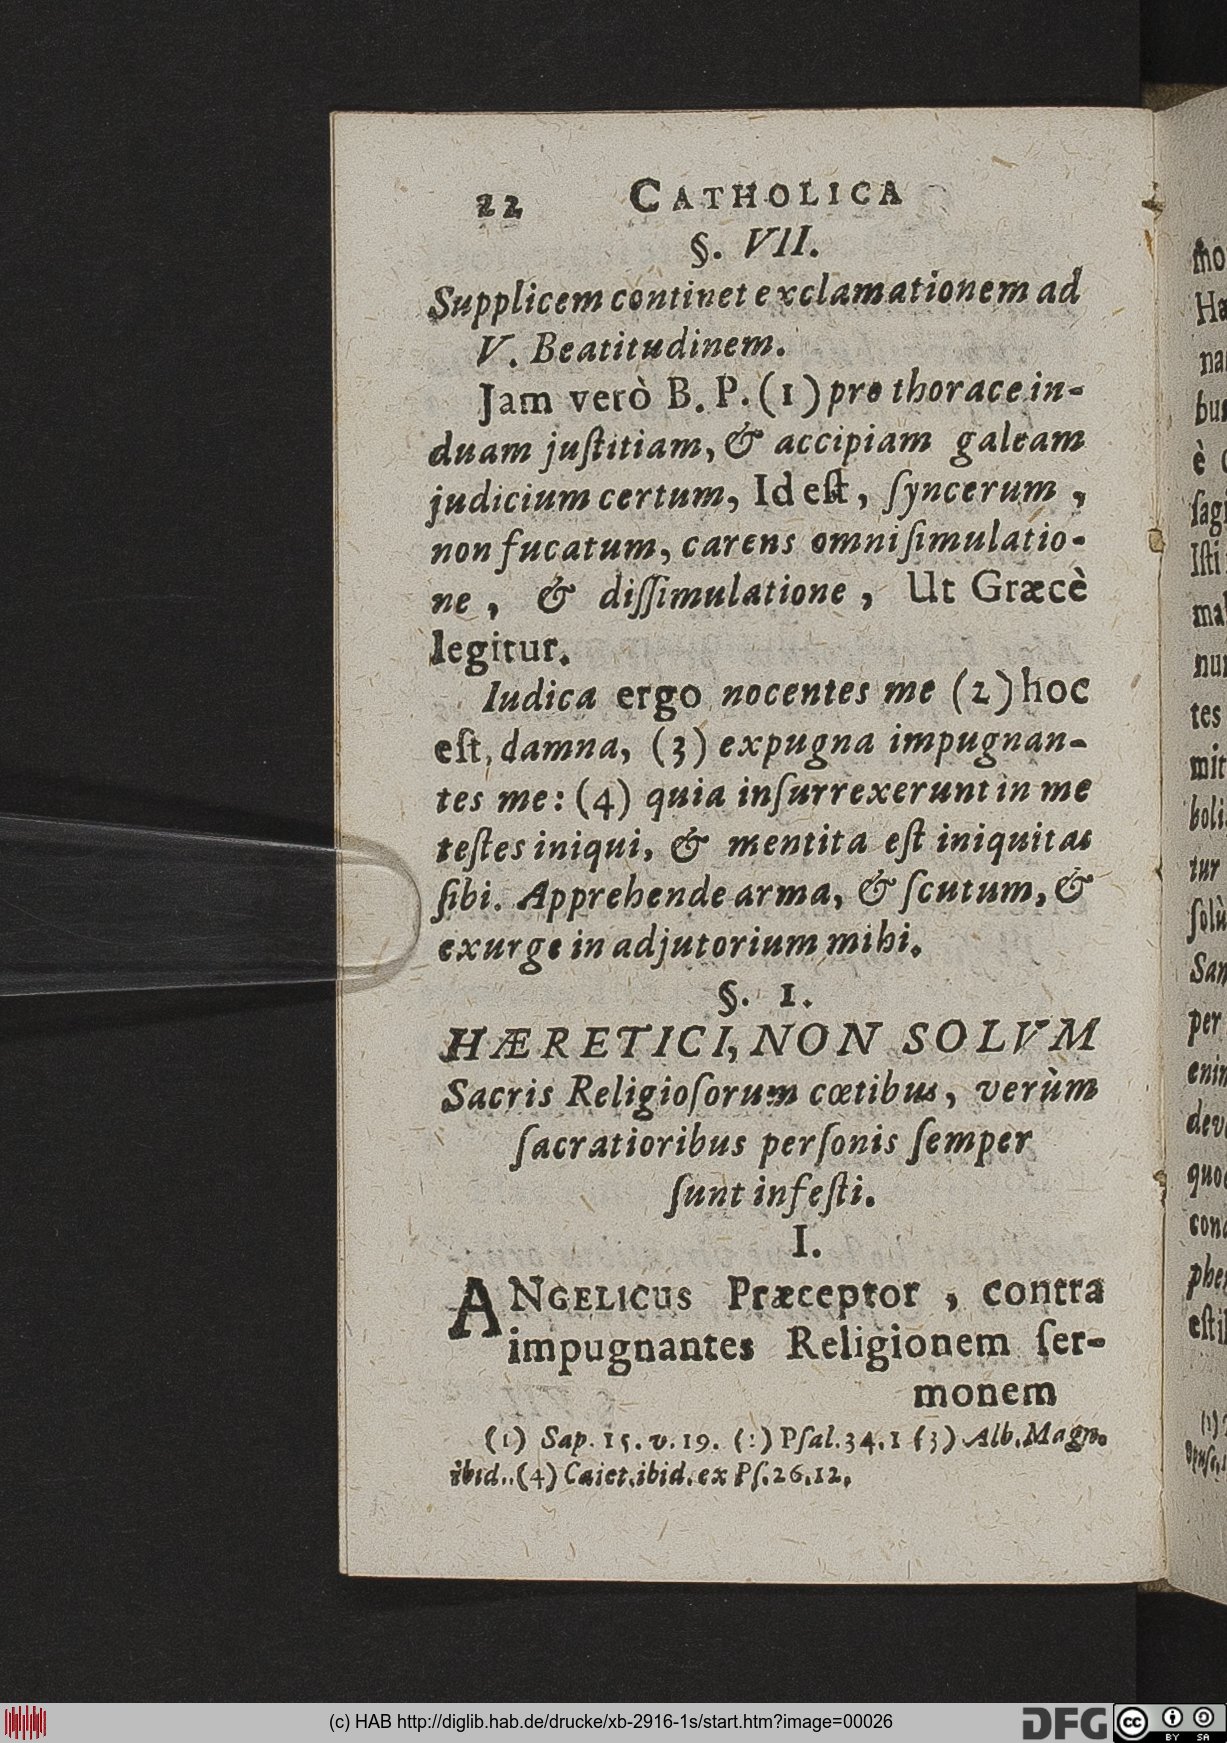 22 CATHOLICA
§. VII.
Supplicem continet exclamationem ad
V. Beatitudinem.
Jam verò B. P. (1) pro thorace in-
duam juſtitiam, & accipiam galeam
judicium certum, Id eſt, ſyncerum,
non fucatum, carens omni ſimulatio-
ne, & diſſimulatione, Ut Græcè
legitur.
Iudica ergo nocentes me (2) hoc
eſt, damna, (3) expugna impugnan-
tes me: (4) quia inſurrexerunt in me
teſtes iniqui, & mentita eſt iniquitas
ſibi. Apprehende arma, & ſcutum, &
exurge in adjutorium mihi.
§. 1.
HÆRETICI, NON SOLVM
Sacris Religioſorum cœtibus, verùm
ſacratioribus perſonis ſemper
ſunt infeſti.
I.
ANGELICUS Præceptor, contra
impugnantes Religionem ſer-
monem
(1) Sap. 15. v. 19. (:) Pſal. 34. 1 (3) Alb. Magn.
ibid.. (4) Caiet. ibid. ex Pſ. 26. 12.
mo
Hæ
na
bus
è
ſag
Iſti
mal
nur
tes
mit
boli
tur
ſolù
San
per
enim
devo
quo
con
phe
eſt
(c) HAB http://diglib.hab.de/drucke/xb-2916-1s/start.htm?image=00026
DFG
cc BY SA